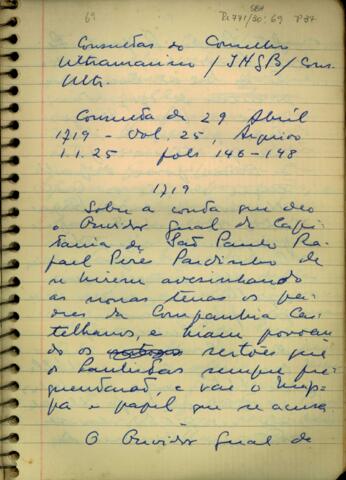 69
SBH
Pi 771/30: 69 P37
Consultas do Conselho
Ultramarino / IHGB / Cons.
Ultr.
Consulta de 29 Abril
1719 - Vol. 25, Arquivo
1.1.25 fols 146-148
1719
Sobre a conta que deo
o Ouvidor Geral da Capi
tania de São Paulo Ra
fael Pires Pardinho de
se hirem avesinhando
as novas terras os pa
dres da Companhia Cas
telhanos, e hiam povoan
do os sertões que
os Paulistas sempre fre
quentarão, e vae o Map
pa e papel que se acusa
O Ouvidor Geral de